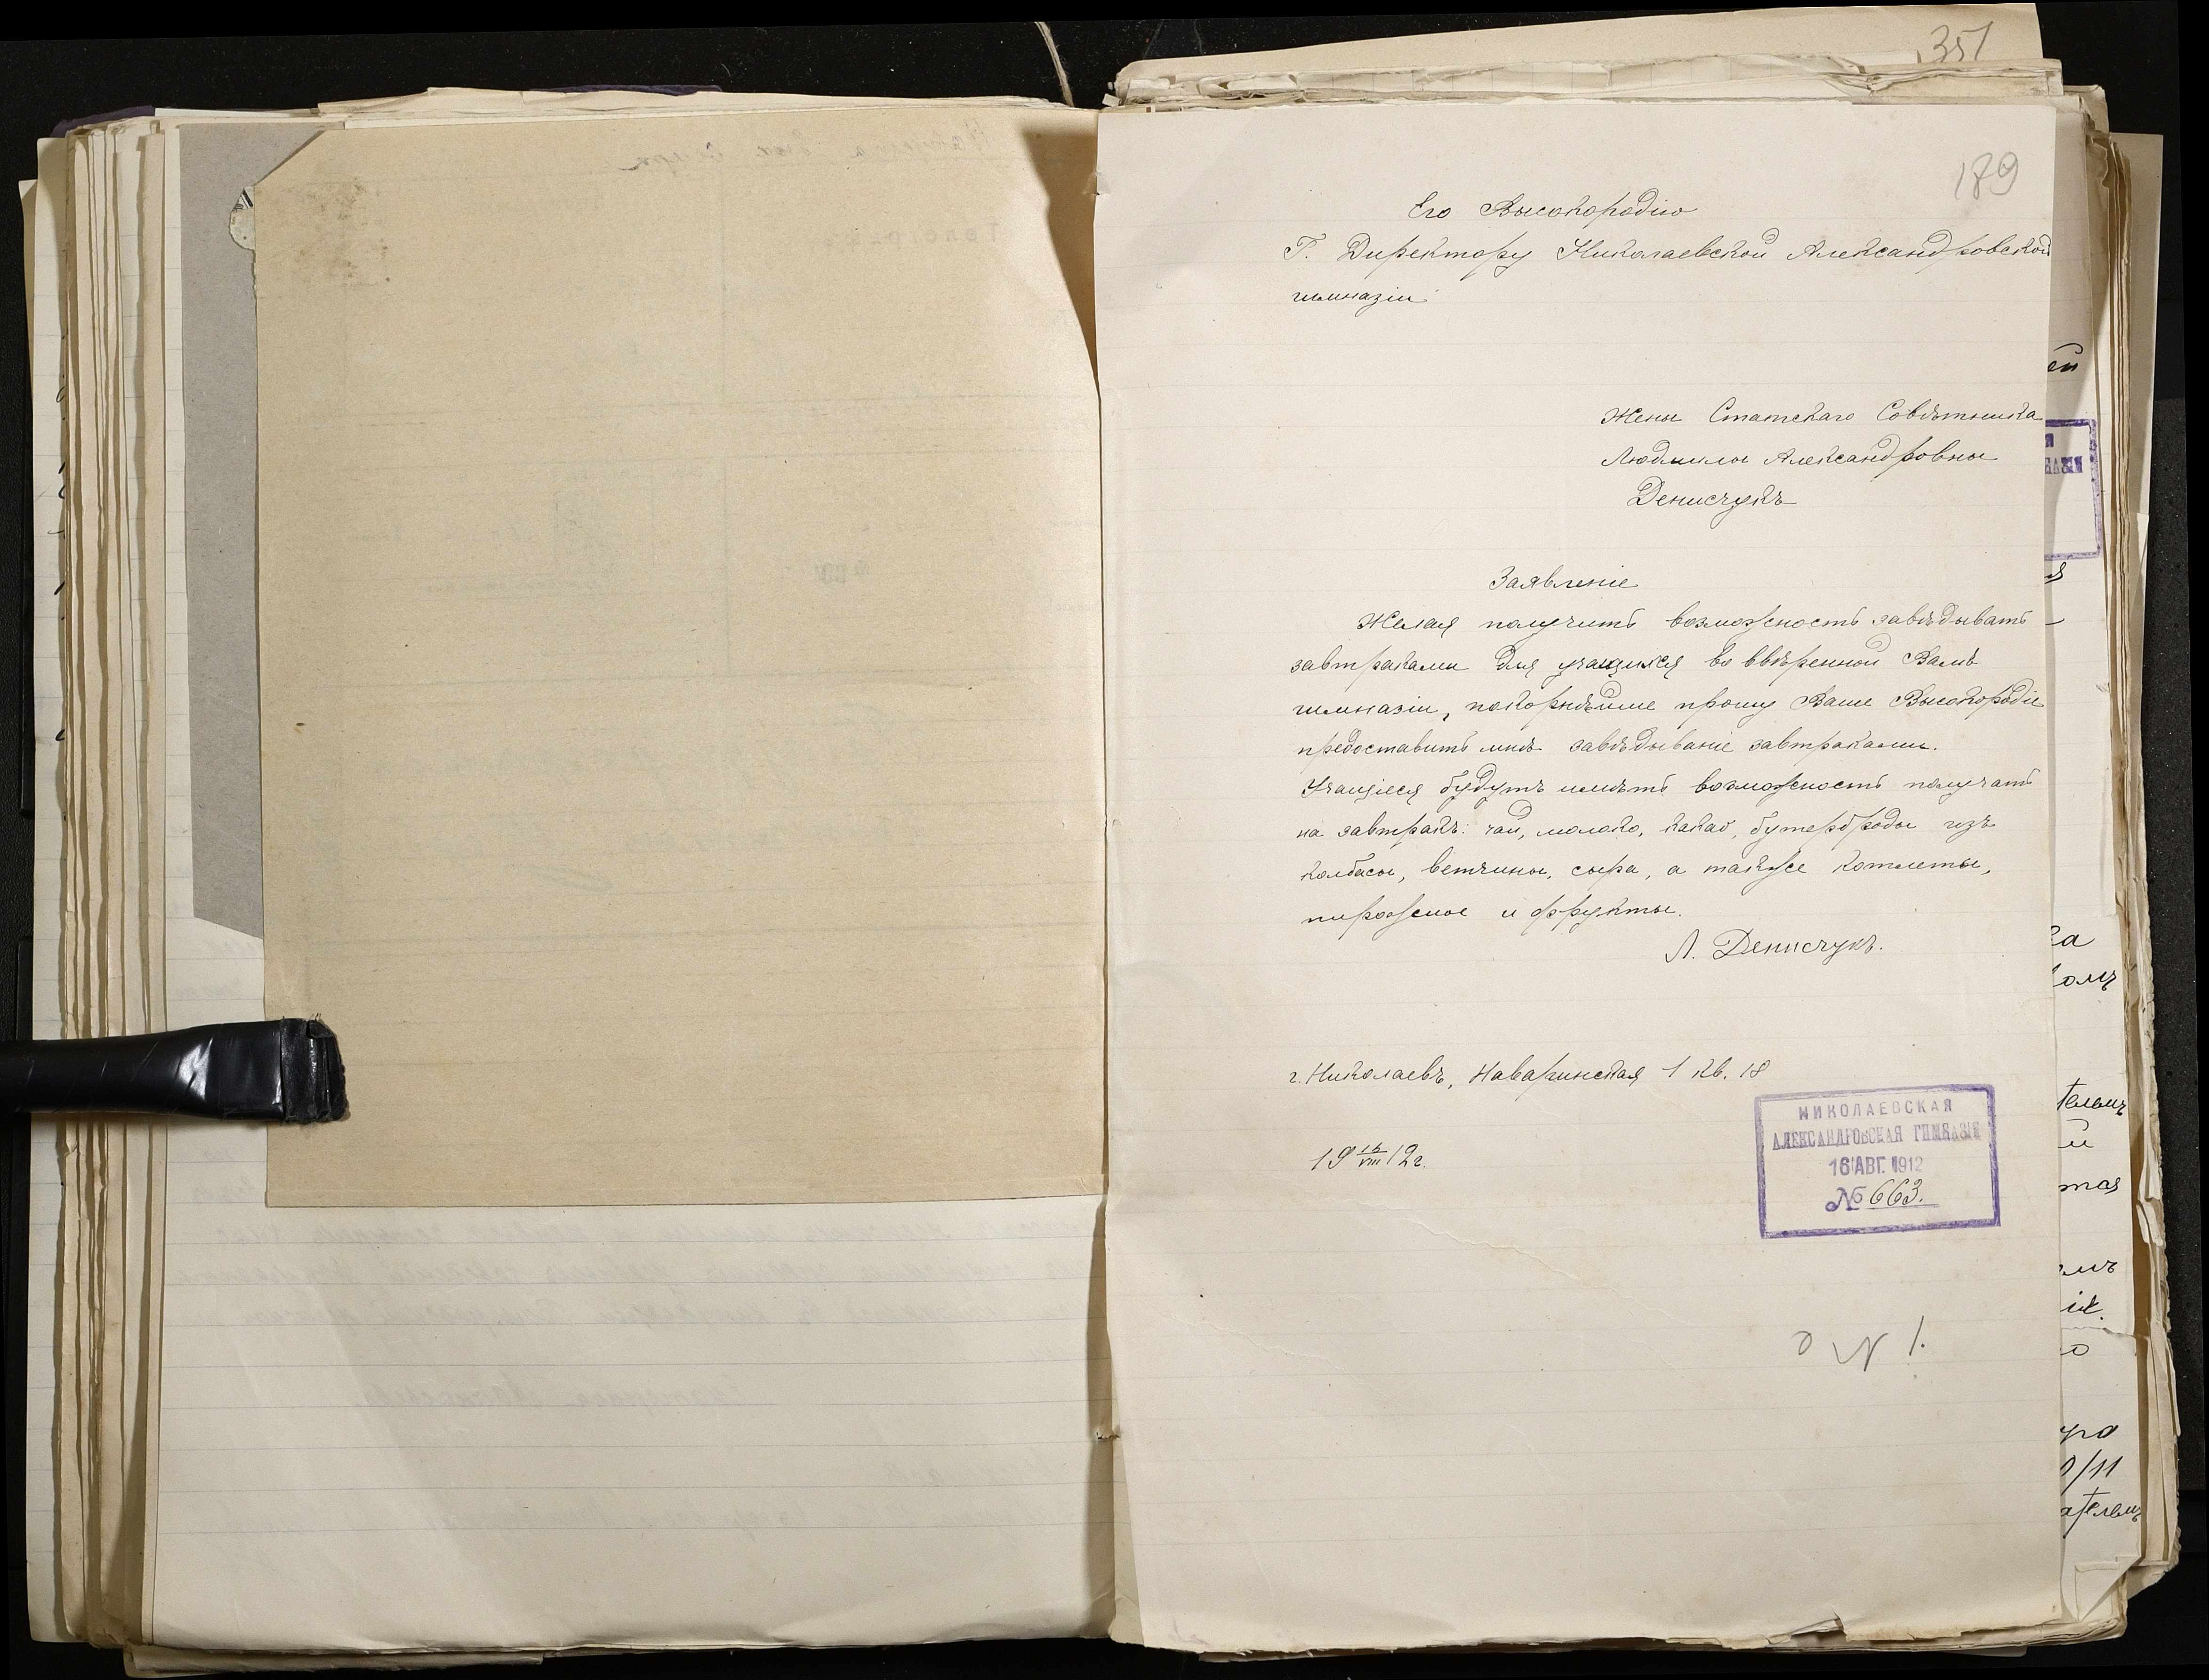 351
189
Его Высокородію
Г. Директору Николаевской Александровской
гимназіи
Жены Статскаго Совѣтника
Людмилы Александровны
Денисчукъ
Заявленіе
Желая получить возможность завѣдывать
завтраками для учащихся во ввѣренной Вамъ
гимназіи, покорнѣйше прошу Ваше Высокородіе
предоставить мнѣ завѣдываніе завтраками.
Учащіеся будутъ имѣть возможность получать
на завтракъ: чай, молоко, какао, бутерброды изъ
колбасы, ветчины, сыра, а также котлеты,
пирожное и фрукты.
Л. Денисчукъ.
г. Николаевъ, Наваринская 1 кв. 18
19 VIII 12 г.
НИКОЛАЕВСКАЯ
АЛЕКСАНДРОВСКАЯ ГИМНАЗІЯ
16 АВГ. 1912
№ 663.